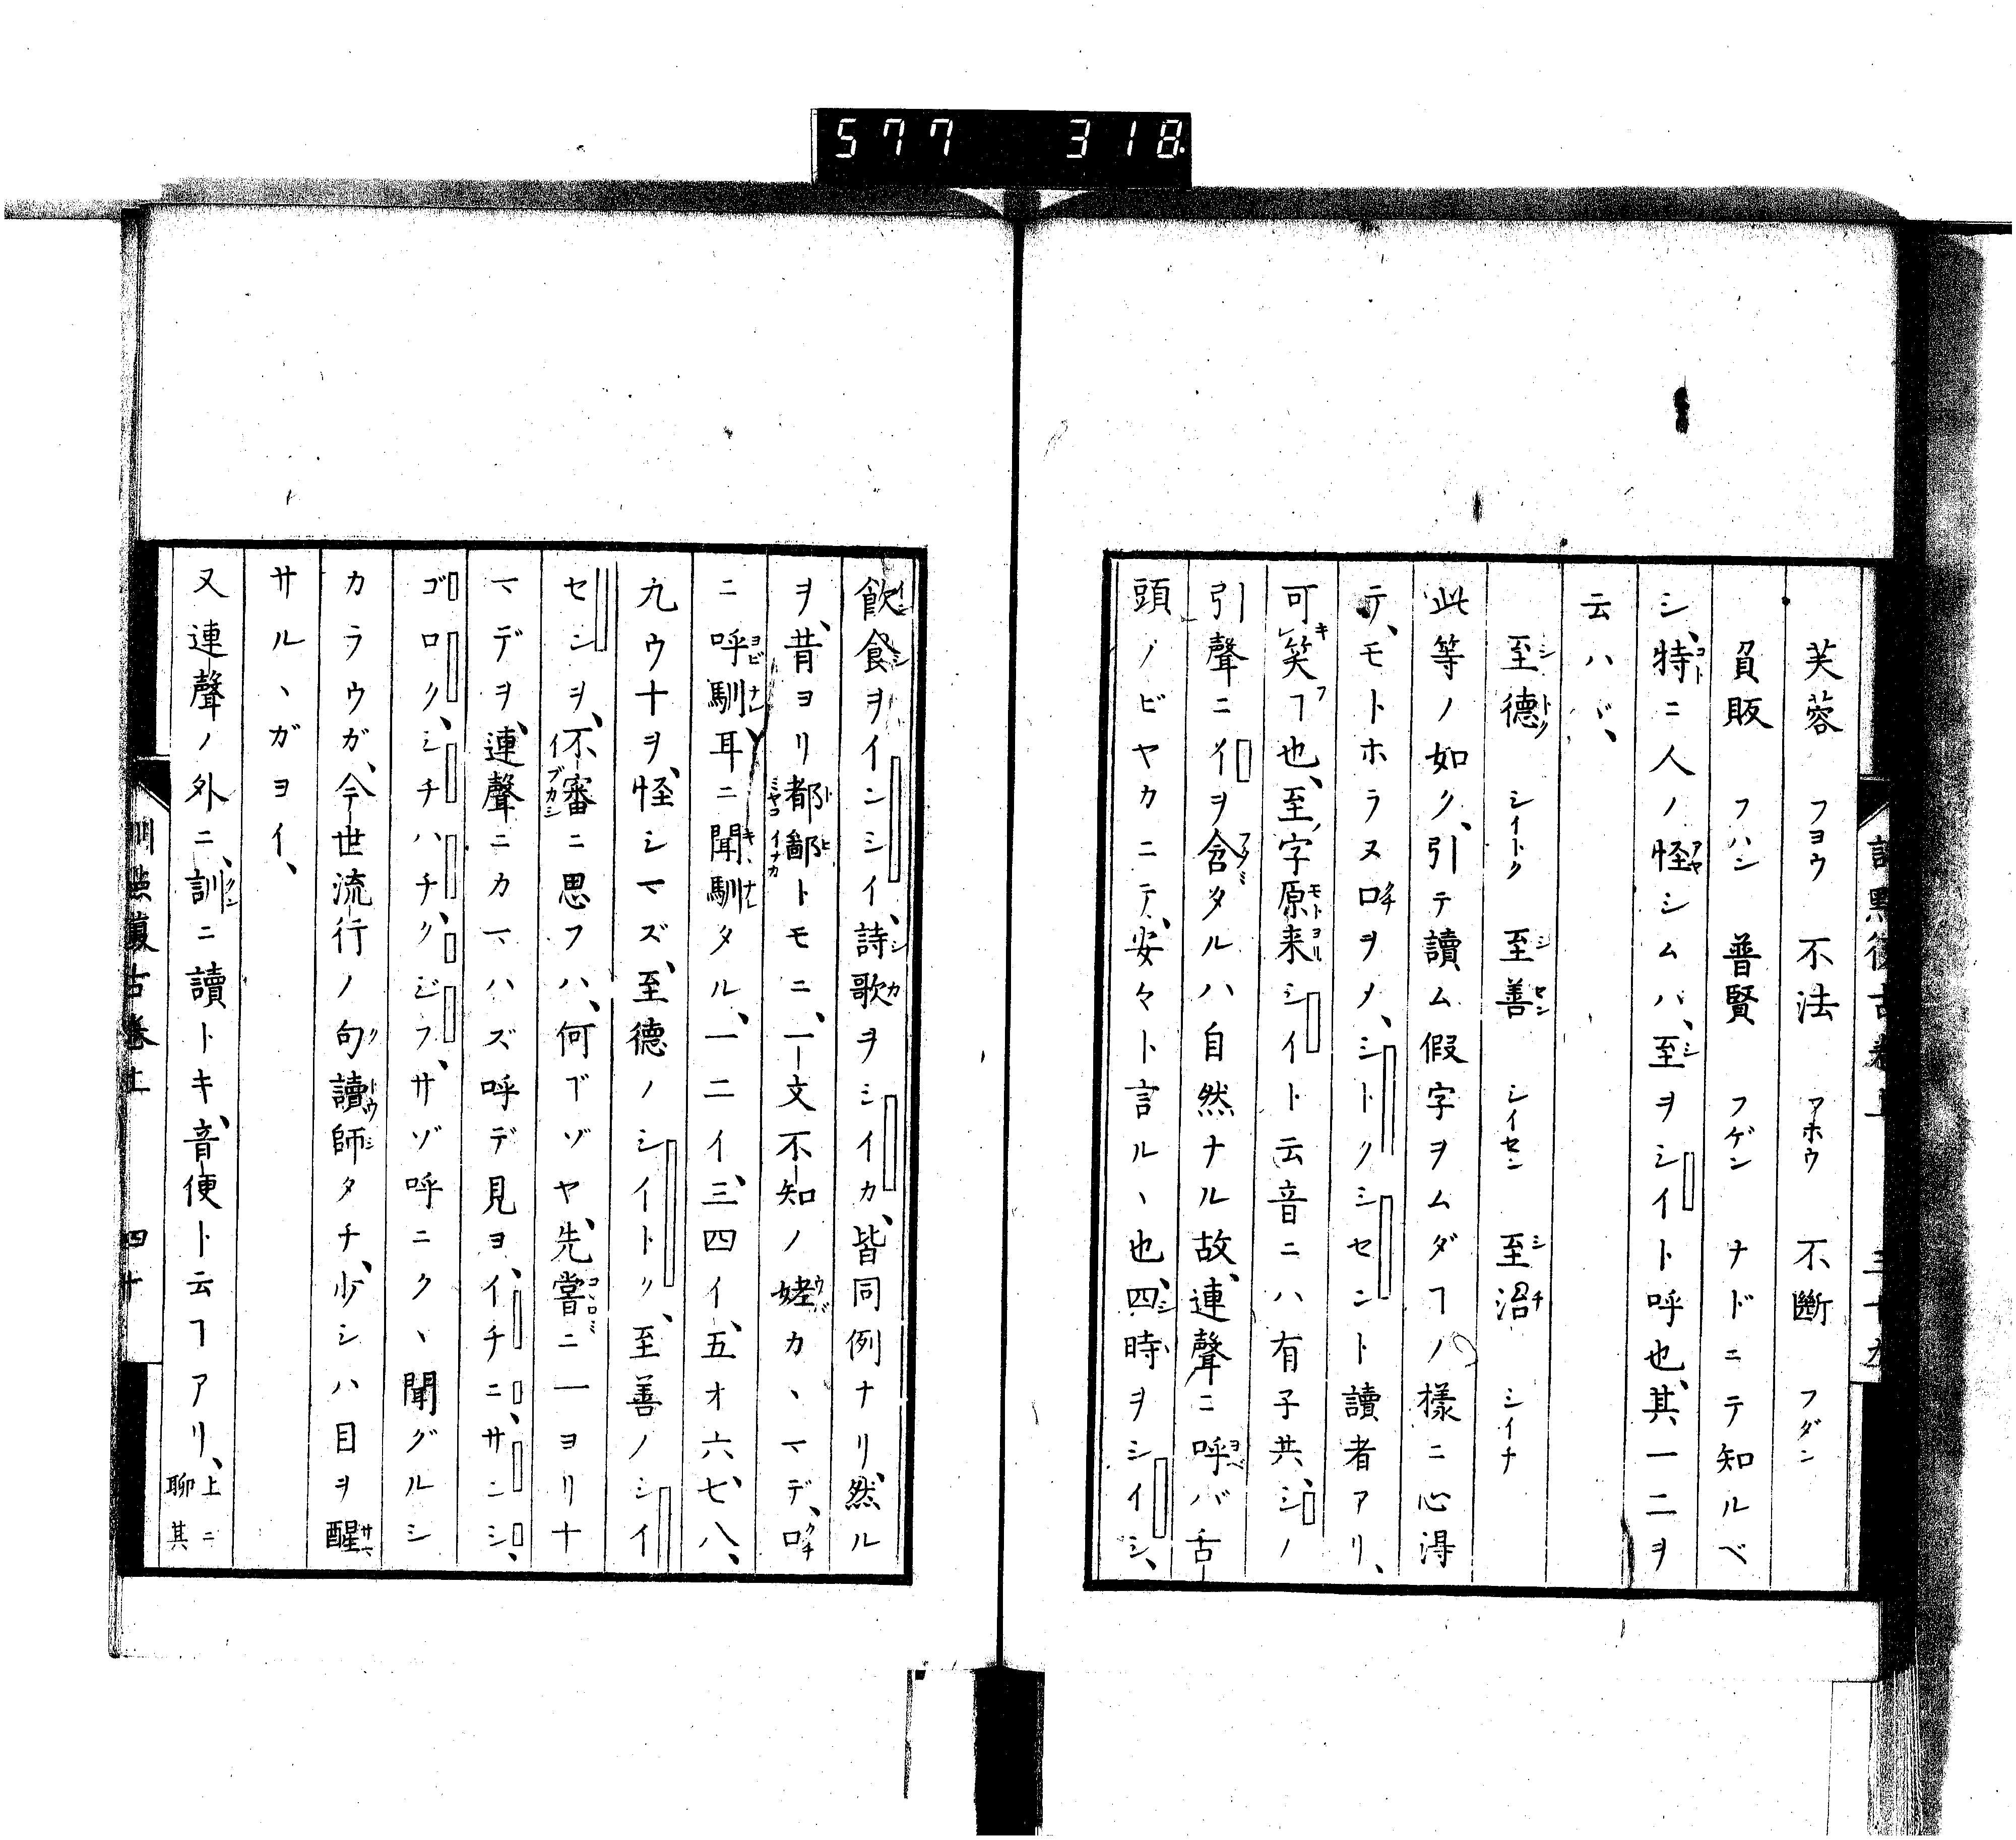 577 318
訓點復古卷上 三十九
芙蓉 フヨウ 不法 フホウ 不斷 フダン
負販 フハン 普賢 フゲン ナドニテ知ルベ
シ、特ニ人ノ怪シムハ、至ヲシイト呼也、其一二ヲ
云ハヾ、
至德 シイトク 至善 シイセン 至治 シイチ
此等ノ如ク、引テ讀ム假字ヲムダヿノ樣ニ心得
テ、モトホラヌ口ヲメ、シトクシセント讀者アリ、
可笑ヿ也、至ノ字原来シイト云音ニハ有子共、シノ
引聲ニイヲ含タルハ自然ナル故、連聲ニ呼バ舌
頭ノビヤカニテ、安々ト言ルヽ也、四時ヲシイシ、
飲食ヲインシイ、詩歌ヲシイカ、皆同例ナリ、然ル
ヲ、昔ヨリ都鄙トモニ、一文不知ノ姥カヽマデ、口
ニ呼馴、耳ニ聞馴タル、一二イ、三四イ、五オ六、七、八、
九ウ十ヲ、怪シマズ、至德ノシイトク、至善ノシイ
センヲ、不審ニ思フハ、何ゾヤ、先嘗ニ一ヨリ十
マデヲ、連聲ニカマハズ呼デ見ヨ、イチニ、サンシ、
ゴロク、シチハチ、クジフ、サゾ呼ニクヽ聞グルシ
カラウガ、今世流行ノ句讀師タチ、少シハ目ヲ醒
サルヽガヨイ、
又連聲ノ外ニ、訓ニ讀トキ、音便ト云ヿアリ、上ニ
聊其
訓點復古卷上 四十